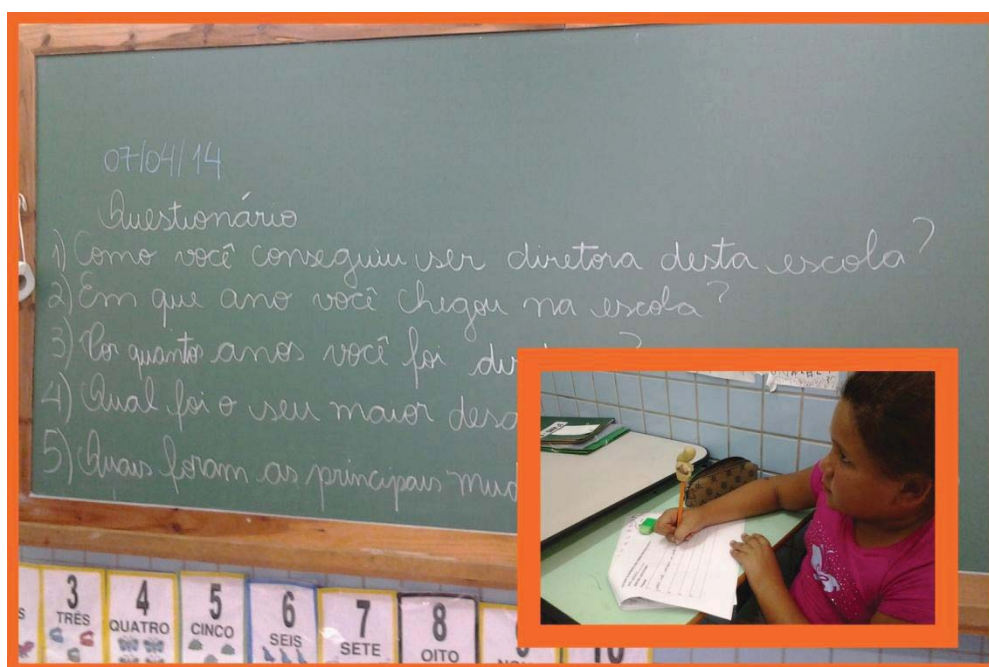 07/04/14
Questionário
1) Como você conseguiu ser diretora desta escola?
2) Em que ano você chegou na escola?
3) Por quantos anos você foi
4) Qual foi o seu maior
5) Quais foram as principais
3 4 5 6 7 8
TRÊS QUATRO CINCO SEIS SETE OITO